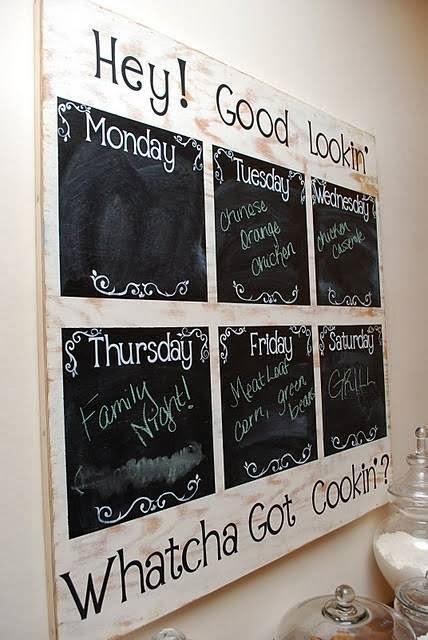 Hey! Good Lookin'
Monday
Tuesday
Chinese
Orange
Chicken
Wednesday
chicken
Casserole
Thursday
Family
Night!
Friday
Meatloaf
corn, green
beans
Saturday
GRILL
Whatcha Got Cookin'?